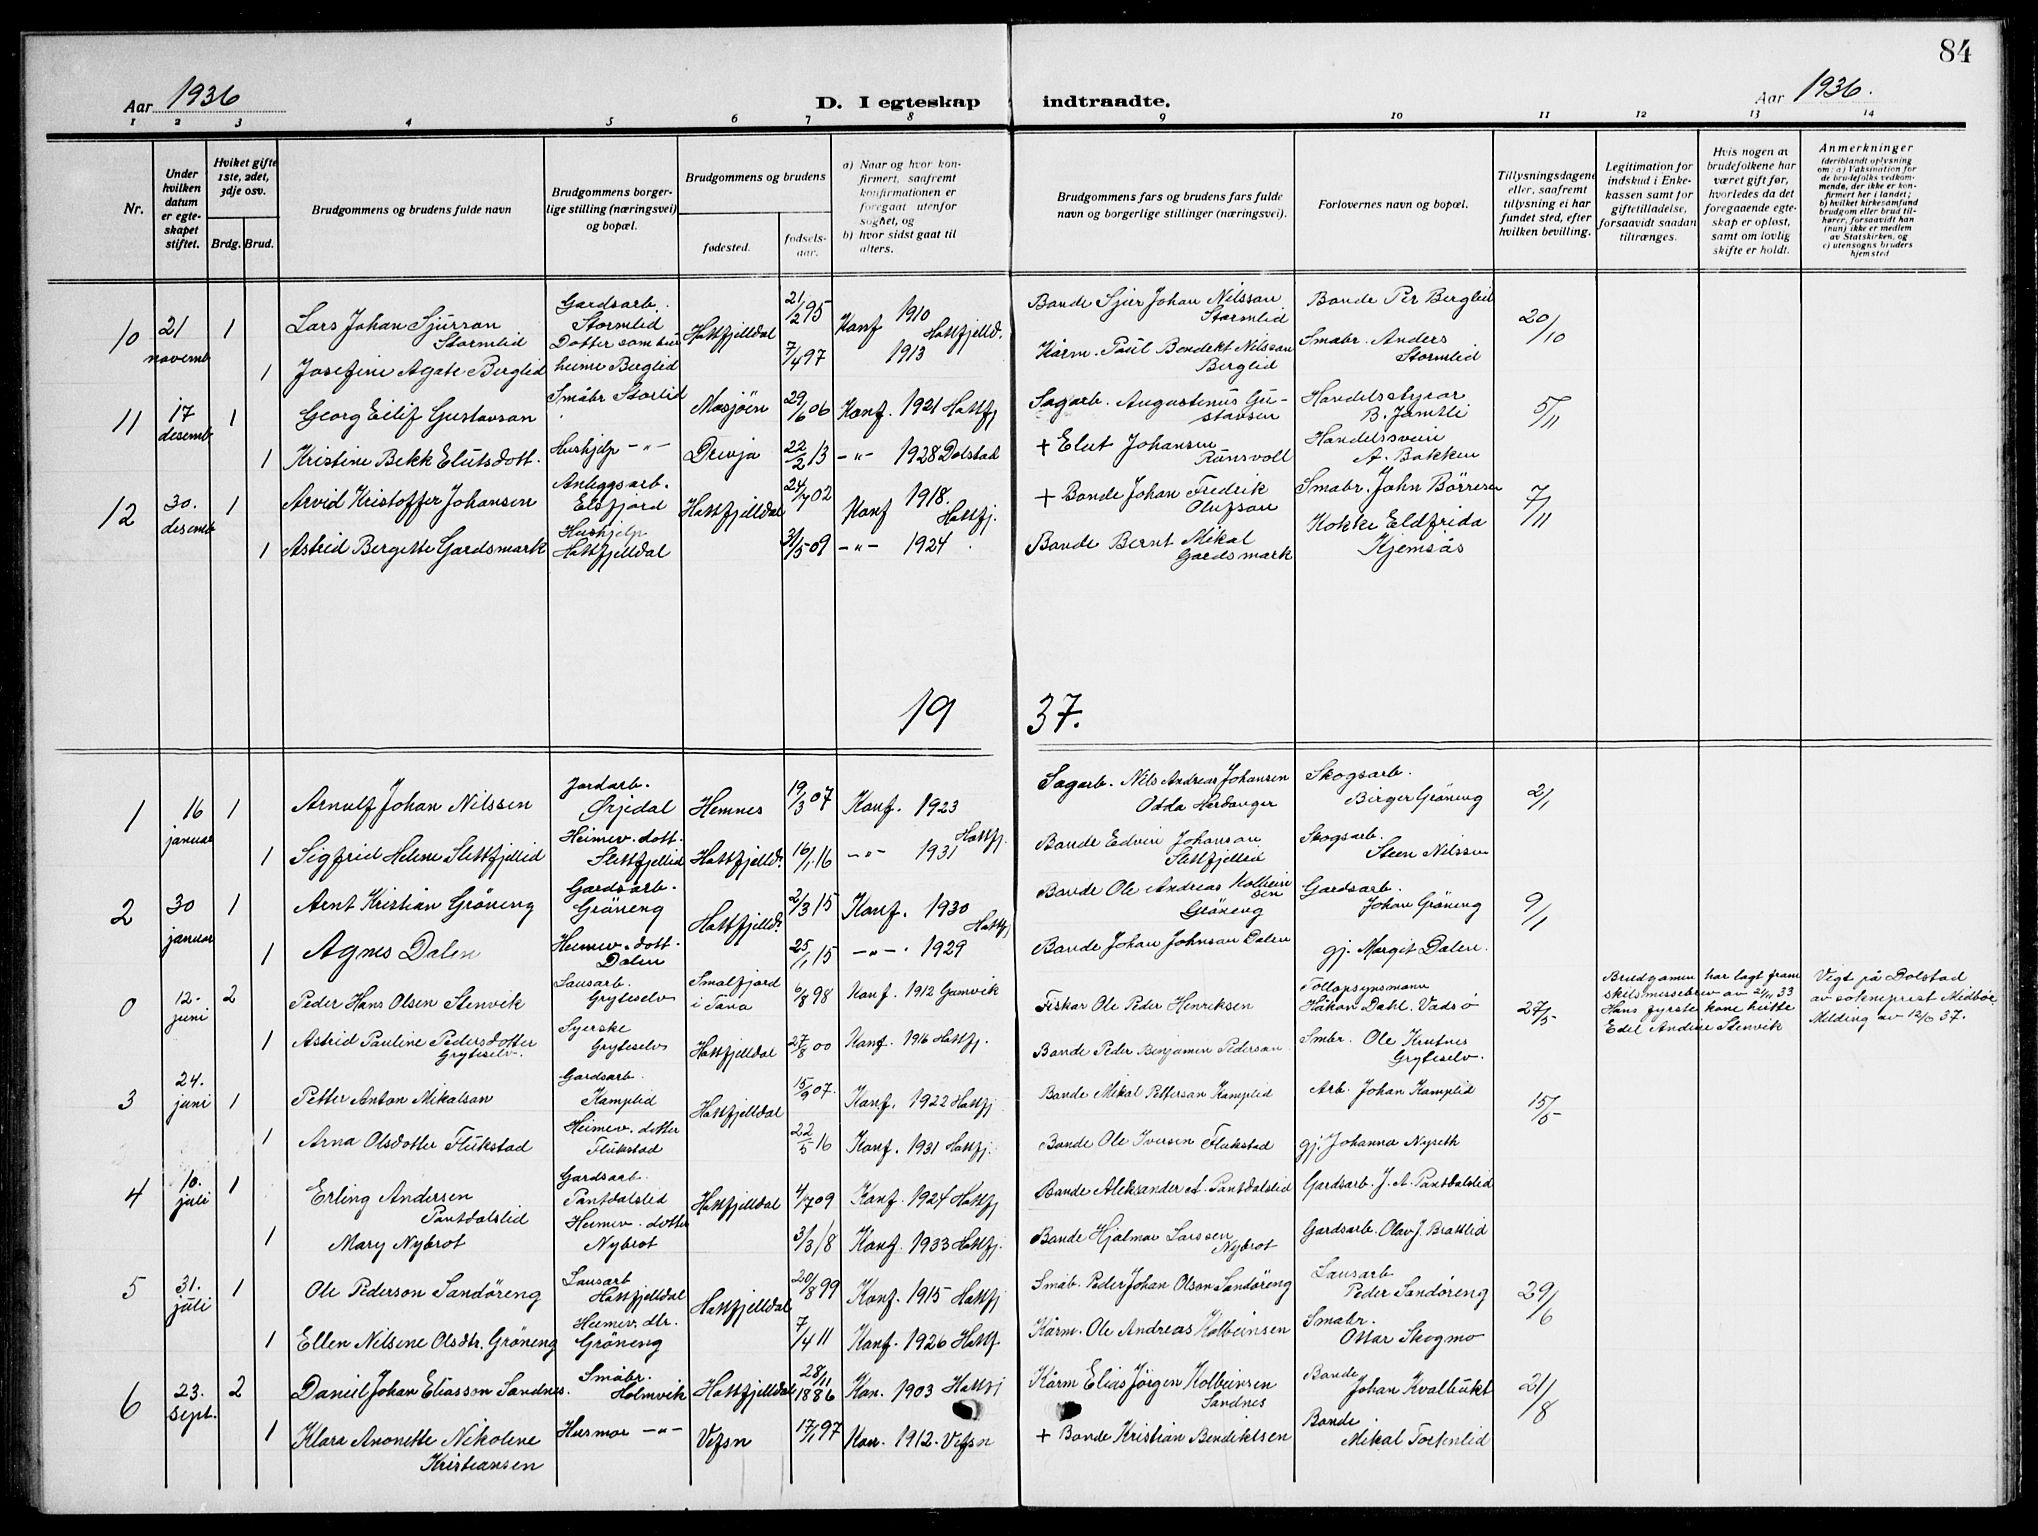 84
Aar 1936
D. I egteskap indtraadte.
Aar 1936.
1 2 3 4 5 6 7 8 9 10 11 12 13 14
Nr.
Under hvilken datum er egteskapet stiftet.
Hvilket gifte 1ste, 2det, 3dje osv.
Brdg. Brud.
Brudgommens og brudens fulde navn
Brudgommens borgerlige stilling (næringsvei) og bopæl.
Brudgommens og brudens
fødested.
fødselsaar.
a) Naar og hvor konfirmert, saafremt konfirmationen er foregaat utenfor sognet, og
b) hvor sidst gaat til alters.
Brudgommens fars og brudens fars fulde navn og borgerlige stillinger (næringsvei).
Forlovernes navn og bopæl.
Tillysningsdagene eller, saafremt tillysning ei har fundet sted, efter hvilken bevilling.
Legitimation for indskud i Enkekassen samt for giftetilladelse, forsaavidt saadan tiltrænges.
Hvis nogen av brudefolkene har været gift før, hvorledes da det foregaaende egteskap er opløst, samt om lovlig skifte er holdt.
Anmerkninger
(deriblandt oplysning om: a) Vaksination for de brudefolks vedkommende, der ikke er konfirmert her i landet; b) hvilket kirkesamfund brudgom eller brud tilhører, forsaavidt han (hun) ikke er medlem av Statskirken, og c) utensogns bruders hjemsted
10 21 novemb 1 Lars Johan Sjursson Stormlid Gardsarb. Stormlid Hattfjelldal 21/2 95 Konf 1910 Hattfjelld. Bonde Sjur Johan Nilsson Stormlid Bonde Per Berglid 20/10
1 Josefine Agate Berglid Dotter som hus heime Berglid 7/4 97 1913 Kårm. Paul Bendekt Nilsson Berglid Småbr. Anders Stormlid
11 17 desemb 1 Georg Eilif Gustavson Småbr Storlid Mosjøen 29/6 06 Konf. 1921 Hattfj Sagarb. Augustinus Gustavsen Handelsstyrar B. Jamtli 5/11
1 Kristine Bekk Elutsdott. Hushjelp -"- Drevja 22/2 13 -"- 1928 Dolstad + Elut Johansen Runsvoll Handelssvein A. Bakken
12 30. desemb 1 Arvid Kristoffer Johansen Anleggsarb. Elsfjord Hattfjelldal 24/7 02 Konf 1918. Hattfj. + Bonde Johan Fredrik Olufson Småbr. John Börresen 7/11
1 Astrid Bergette Gardsmark Hushjelp Hattfjelldal 31/5 09 -"- 1924. Bonde Bernt Mikal Gardsmark Kokke Eldfrida Kjemsås
19 37.
1 16 januar 1 Arnulf Johan Nilssen Jordarb. Hemnes 19/3 07 Konf. 1923 Sagarb. Nils Andreas Johansen Odda Hardanger Skogsarb. Birger Gröneng 2/1
1 Sigfrid Helene Slettfjellid Heimev. dott. Slettfjellid Hattfjelld. 16/1 16 -"- 1931 Hattfj. Bonde Edvin Johanson Slettfjellid Skogsarb. Steen Nilssen
2 30 januar 1 Arnt Kristian Gröneng Gardsarb. Gröneng Hattfjelld. 2/3 15 Konf. 1930 Hattfj Bonde Ole Andreas Kolbeinsen Gröneng Gardsarb. Johan Gröneng 9/1
1 Agnes Dalen Heimev. dott. Dalen 25/1 15 -"- 1929 Bonde Johan Johnson Dalen gj. Margit Dalen.
0 12. juni 2 Peder Hans Olsen Stenvik Lausarb. Gryteselv Smalfjord i Tana 6/8 98 Konf. 1912 Gamvik Fiskar Ole Peder Henriksen Tollopsynsmann Håkon Dahl. Vadsö 27/5 Brudgomen har lagt fram skilsmissebrev av 21/11 33 Hans fyrste kone heitte Edel Andine Stenvik Vigt på Dolstad av sokneprest Midböe Melding av 12/6 37.
1 Astrid Pauline Pedersdotter Gryteselv. Syerske Gryteselv Hattfjelldal 27/8 00 Konf. 1916 Hattfj. Bonde Peder Benjamin Pederson Smbr. Ole Krutnes Gryteselv.
3 24. juni 1 Petter Anton Mikalson Gardsarb. Kamplid Hattfjelldal 15/9 07. Konf. 1922 Hattfj Bonde Mikal Petterson Kamplid Arb. Johan Kamplid 15/5
1 Arna Olsdotter Flukstad Heimev. dotter Flukstad 22/5 16 Konf. 1931 Hattfj. Bonde Ole Iversen Flukstad gj. Johanna Nyseth
4 10. juli 1 Erling Andersen Pantdalslid Gardsarb. Pantdalslid Hattfjelldal 4/7 09 Konf. 1924 Hattfj Bonde Aleksander A. Pantdalslid Gardsarb. J. A. Pantdalslid
1 Mary Nybrot Heimev. dotter Nybrot 3/3 18 Konf. 1933 Hattfj. Bonde Hjalmar Larssen Nybrot Gardsarb. Olav J. Brattlid
5 31. juli 1 Ole Pederson Sandöreng Lausarb Hattfjelldal Hattfjelldal 20/8 99 Konf. 1915 Hattfj Småb. Peder Johan Olson Sandöreng Lausarb Peder Sandöreng 29/6
1 Ellen Nilsine Olsdtr. Gröneng Heimev. dtr. Gröneng 7/4 11 Konf. 1926 Hattf. Kårm. Ole Andreas Kolbeinsen Småbr. Ottar Skogmo
6 23. sept. 2 Daniel Johan Eliasson Sandnes. Småbr. Holmvik Hattfjelldal 28/11 1886 Kon. 1903 Hattfj Kårm Elias Jörgen Kolbeinsen Sandnes Bonde Johan Kvalbukt 21/8
1 Klara Anonette Nikoline Kristiansen Husmor -"- Vefsn 17/1 97 Kon. 1912. Vefsn + Bonde Kristian Bendiktsen Bonde Mikal Tortenlid